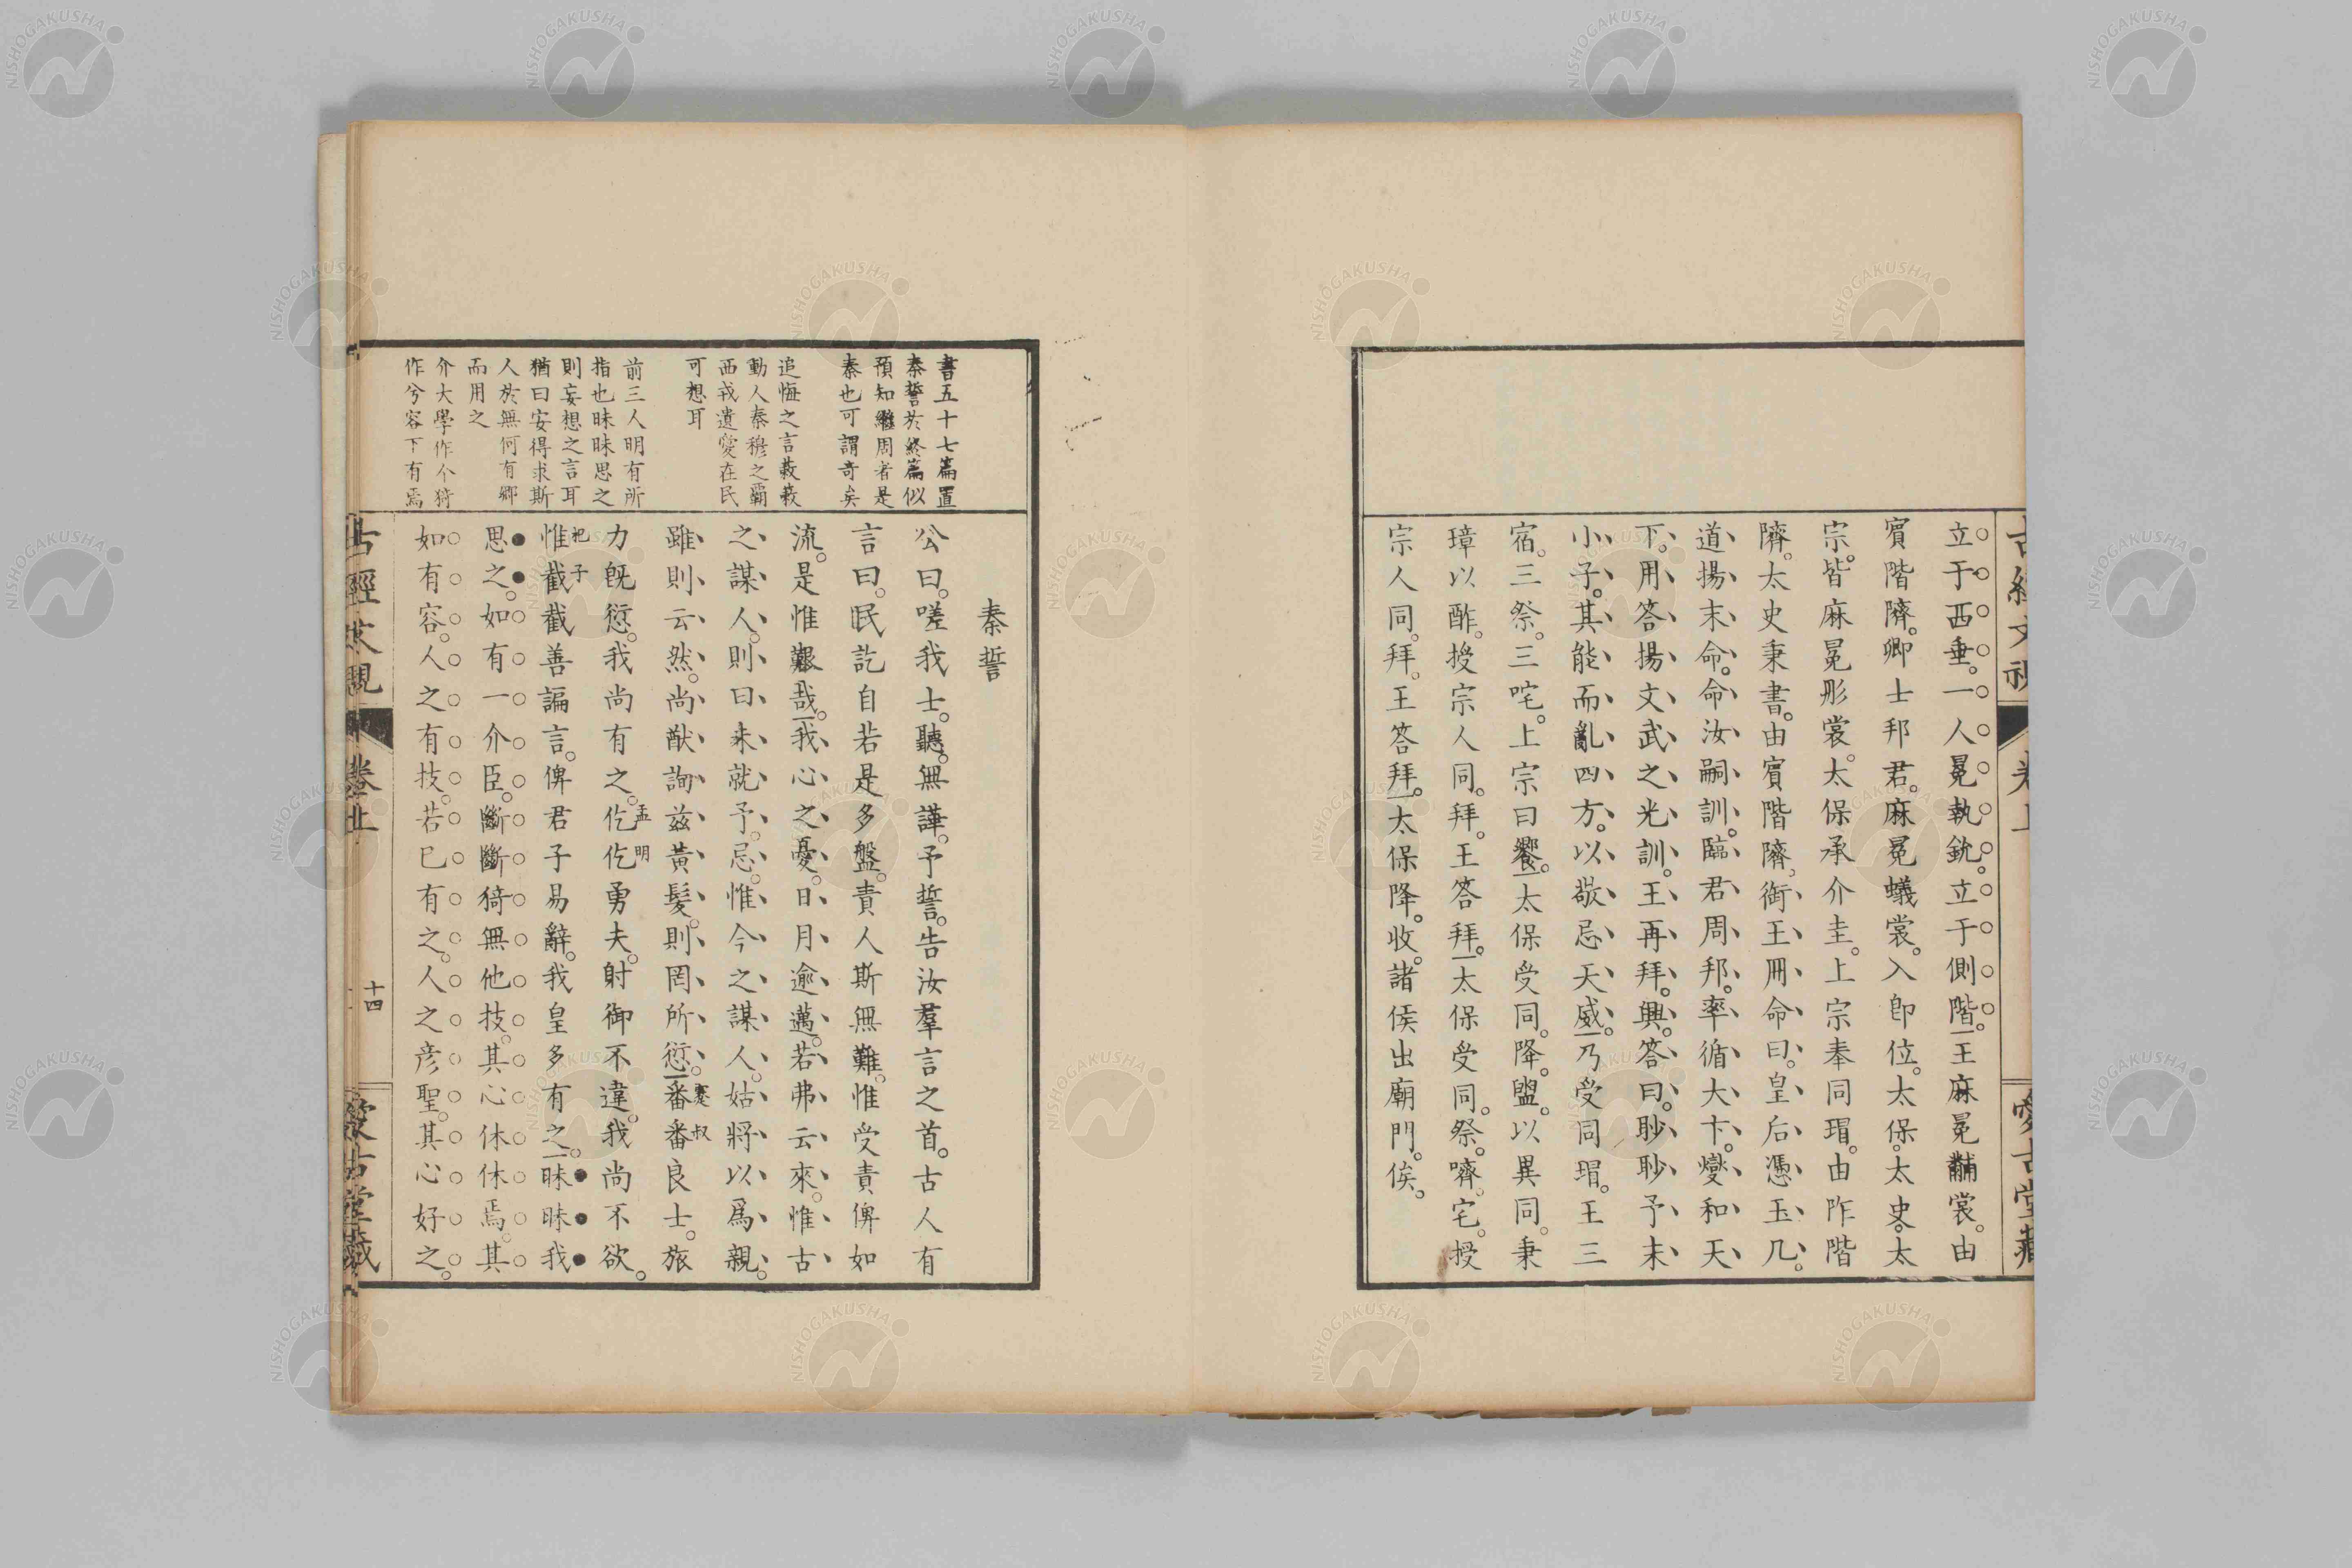 立于西垂。一人冕執鋭。立于側階。王麻冕黼裳。由
賓階隮。卿士邦君。麻冕蟻裳。入卽位。太保。太史。太
宗。皆麻冕彤裳。太保承介圭。上宗奉同瑁。由阼階
隮。太史秉書。由賓階隮。御王冊命曰。皇后憑玉几。
道揚末命。命汝嗣訓。臨君周邦。率循大卞。燮和天
下。用答揚文武之光訓。王再拜。興。答曰。眇眇予末
小子。其能而亂四方。以敬忌天威。乃受同瑁。王三
宿。三祭。三咤。上宗曰饗。太保受同。降。盥。以異同。秉
璋以酢。授宗人同。拜。王答拜。太保受同。祭。嚌。宅。授
宗人同。拜。王答拜。太保降。收。諸侯出廟門。俟。
書五十七篇置
秦誓於終篇似
預知繼周者是
秦也可謂奇矣
追悔之言藹藹
動人秦穆之霸
西戎遺愛在民
可想耳
前三人明有所
指也昧昧思之
則妄想之言耳
猶曰安得求斯
人於無何有鄉
而用之
介大學作个猗
作兮容下有焉
秦誓
公曰。嗟我士。聽。無譁。予誓。告汝羣言之首。古人有
言曰。民訖自若是多盤。責人斯無難。惟受責俾如
流。是惟艱哉。我心之憂。日月逾邁。若弗云來。惟古
之謀人。則曰未就予。忌。惟今之謀人。姑將以爲親。
雖則云然。尚猷詢茲黃髮。則罔所愆。番番良士。旅
蹇叔
力旣愆。我尚有之。仡仡勇夫。射御不違。我尚不欲。
孟明
惟截截善諞言。俾君子易辭。我皇多有之。昧昧我
杞子
思之。如有一介臣。斷斷猗無他技。其心休休焉。其
如有容。人之有技。若已有之。人之彥聖。其心好之。
古經文視
卷上
十四
愛古堂藏